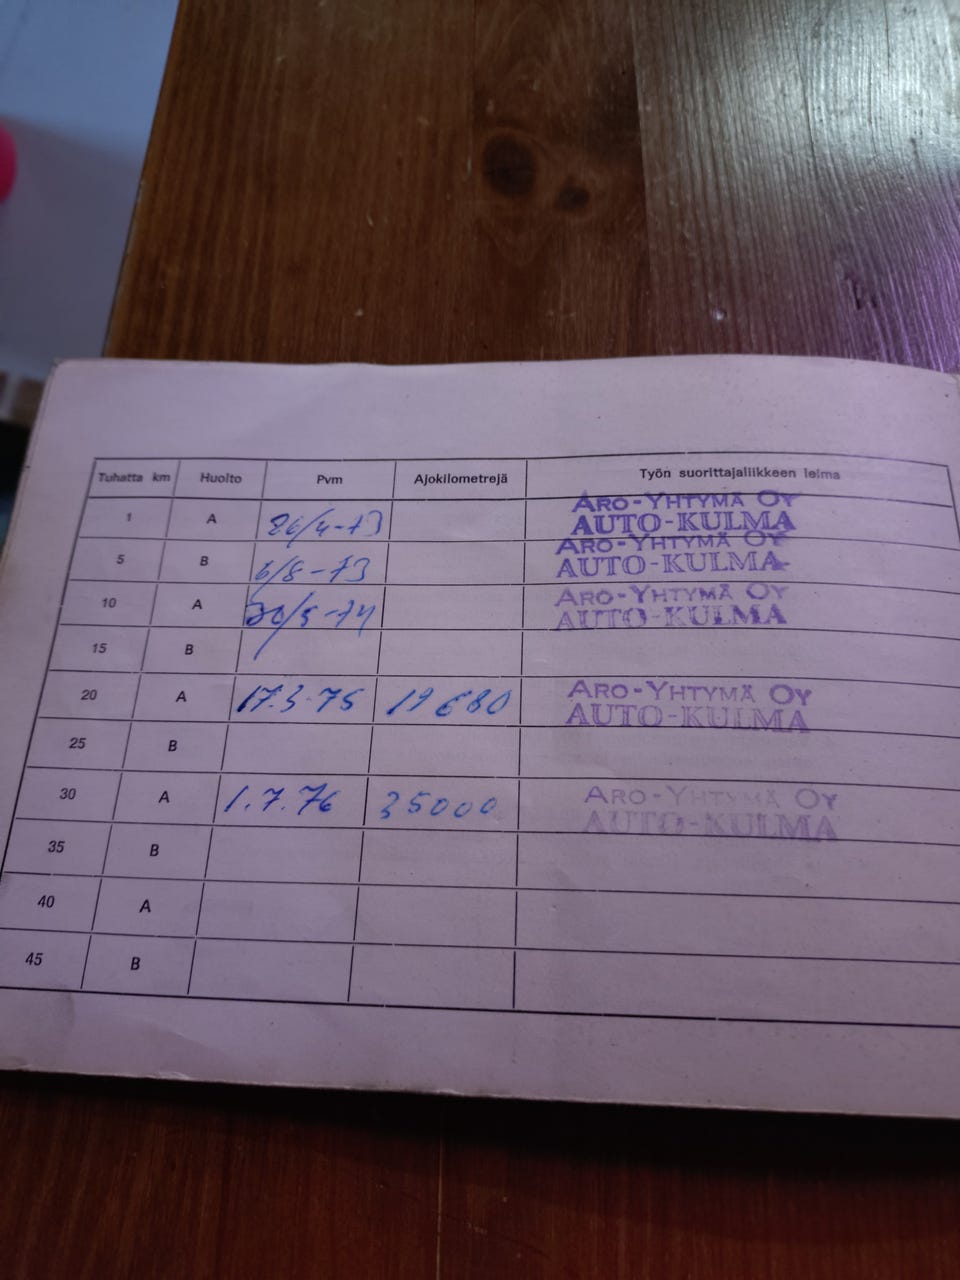 Tuhatta km Huolto Pvm Ajokilometrejä Työn suorittajaliikkeen leima
1 A 26/4-73 ARO-YHTYMÄ OY
AUTO-KULMA
5 B 6/8-73 ARO-YHTYMÄ OY
AUTO-KULMA
10 A ARO-YHTYMÄ OY
AUTO-KULMA
15 B
20 A 17.3.75 19680 ARO-YHTYMÄ OY
AUTO-KULMA
25 B
30 A 1.7.76 35000 ARO-YHTYMÄ OY
AUTO-KULMA
35 B
40 A
45 B